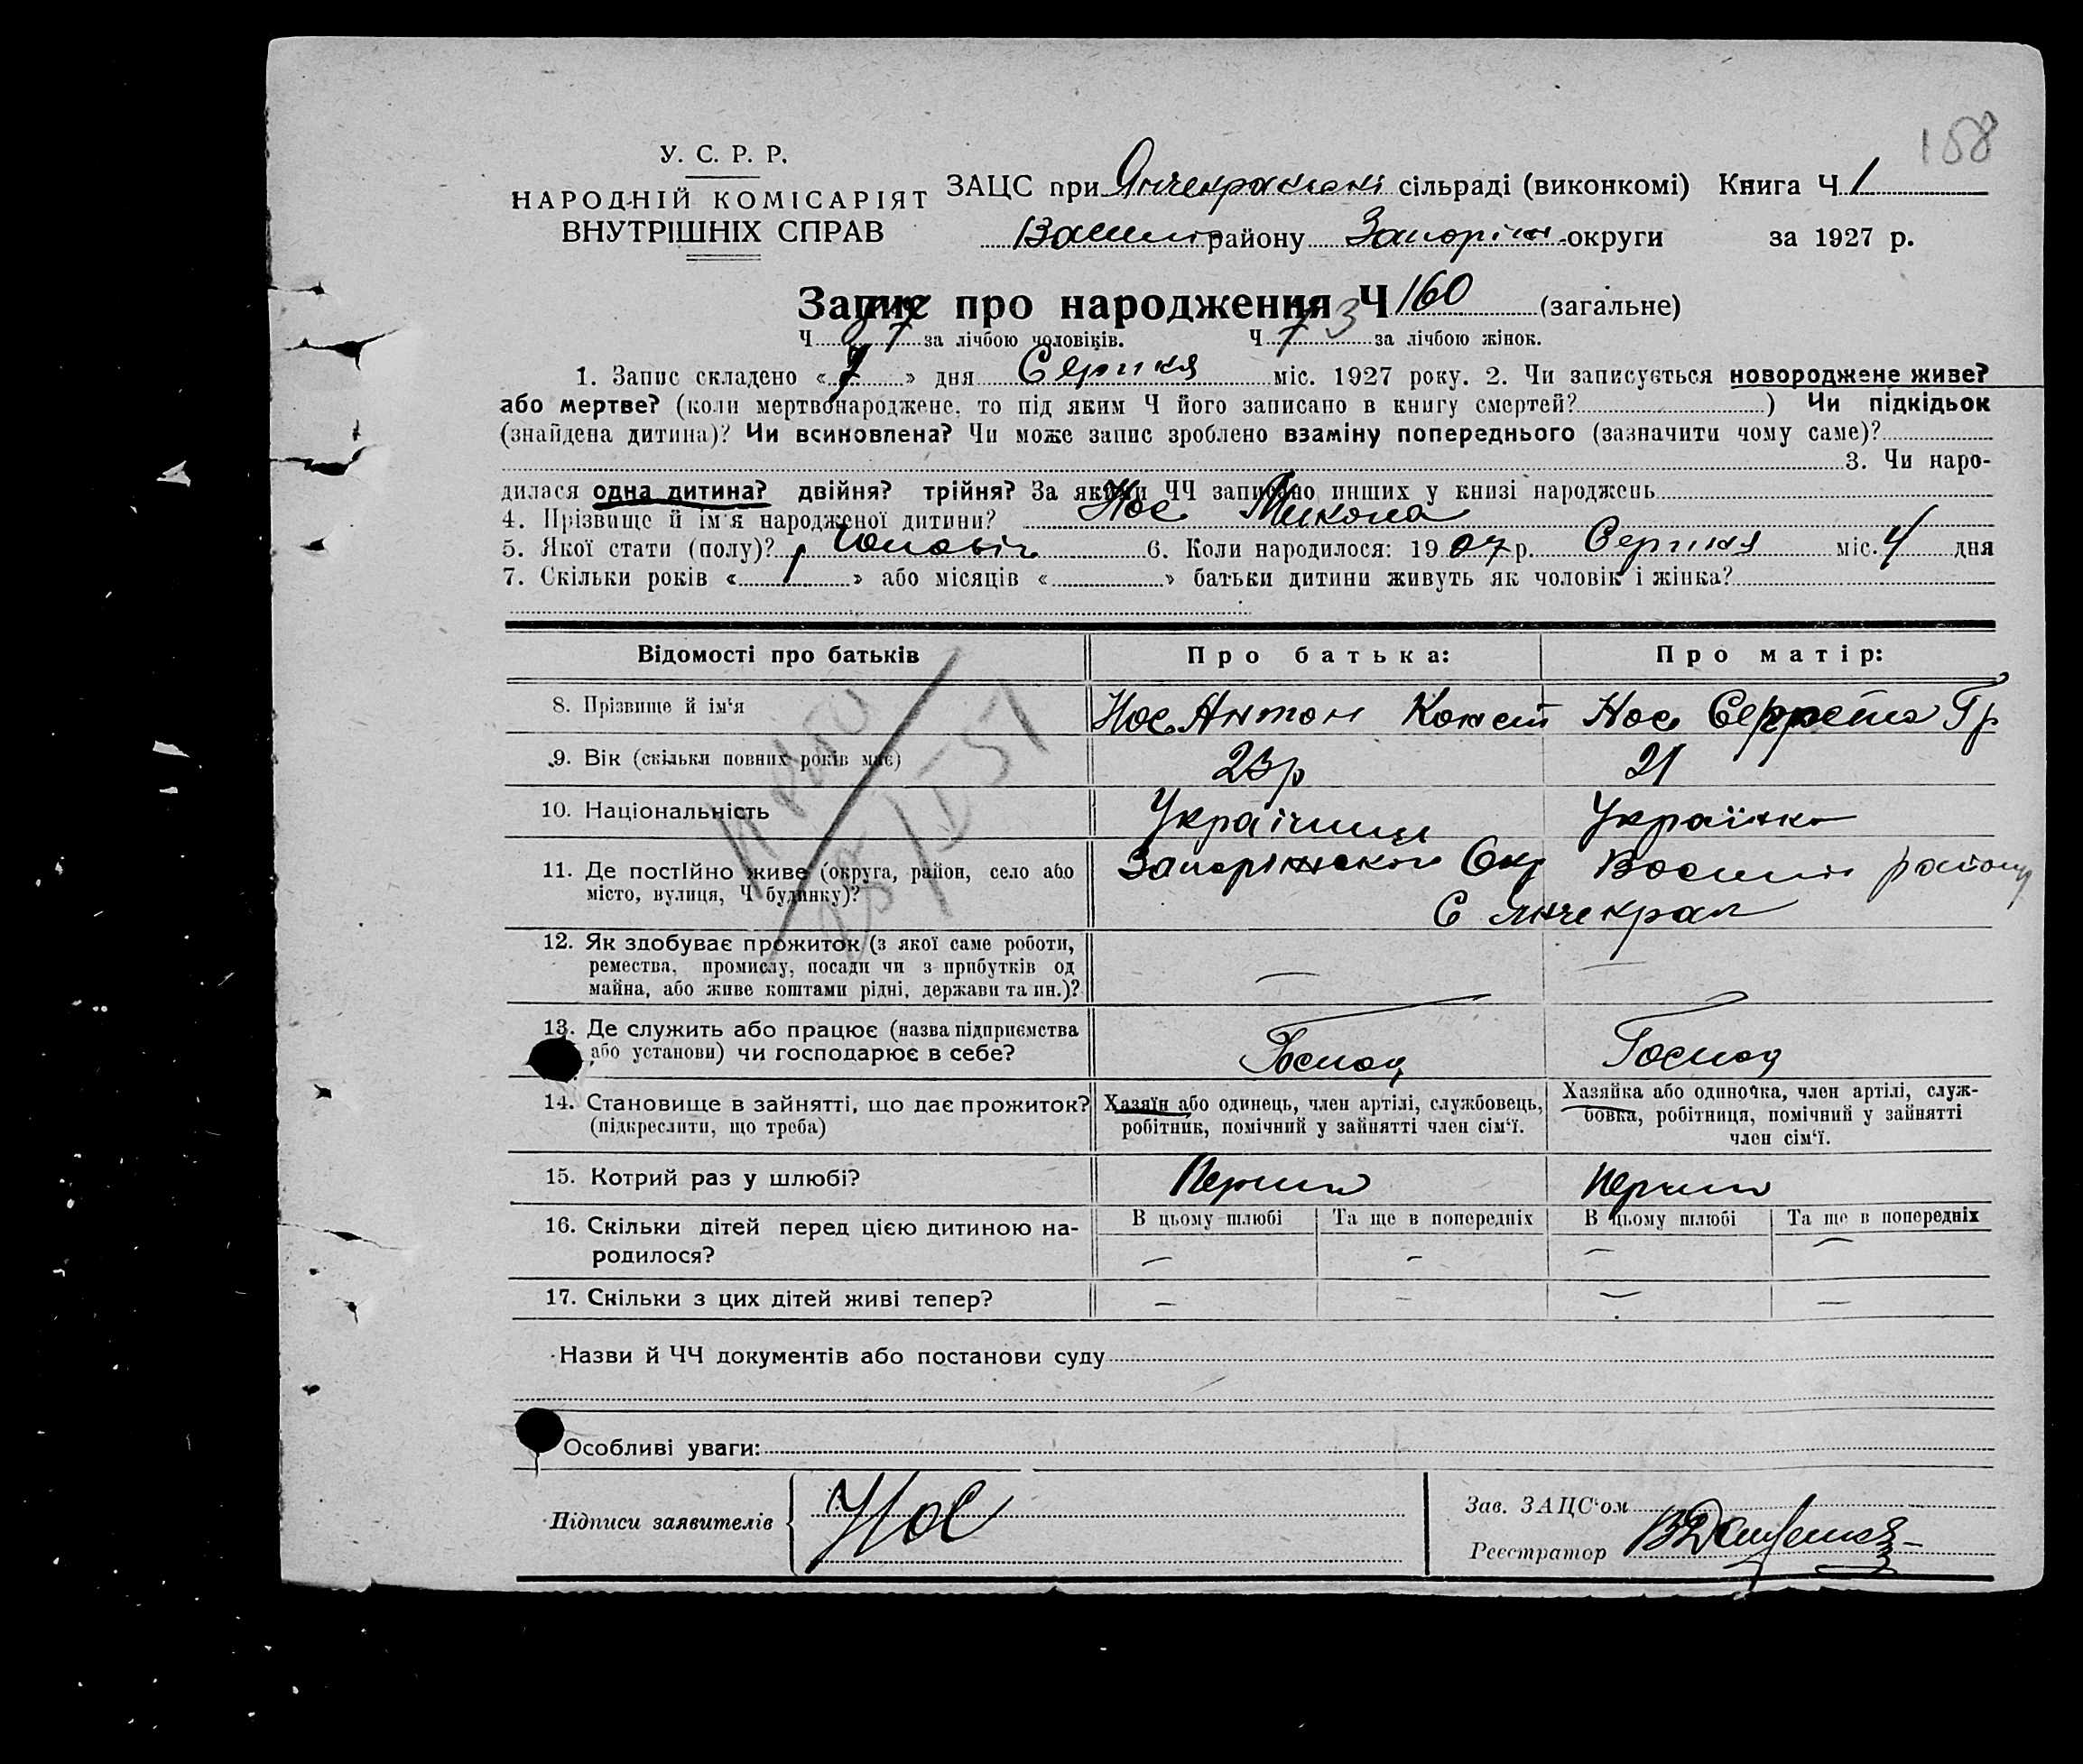 158
У. С. Р. Р.
НАРОДНІЙ КОМІСАРІЯТ
ВНУТРІШНІХ СПРАВ
ЗАЦС при Янчекракскі сільраді (виконкомі) Книга Ч 1
Васил району Запоріж округи за 1927 р.
Запис про народження Ч 160 (загальне)
Ч 87 за лічбою чоловіків. Ч 73 за лічбою жінок.
1. Запис складено « 7 » дня Серпня міс. 1927 року. 2. Чи записується новороджене живе?
або мертве? (коли мертвонароджене, то під яким Ч його записано в книгу смертей? ) Чи підкідьок
(знайдена дитина)? Чи всиновлена? Чи може запис зроблено взаміну попереднього (зазначити чому саме)?
3. Чи наро-
дилася одна дитина? двійня? трійня? За якими ЧЧ записано инших у книзі народжень
4. Прізвище й ім'я народженої дитини? Нос Микола
5. Якої стати (полу)? Чоловіч 6. Коли народилося: 1927 р. Серпня міс. 4 дня
7. Скільки років « 1 » або місяців « » батьки дитини живуть як чоловік і жінка?
Відомості про батьків Про батька: Про матір:
8. Прізвище й ім'я Нос Антон Конст Нос Гр
9. Вік (скільки повних років має) 23 р 21
10. Національність Українець Українка
11. Де постійно живе (округа, район, село або Запоріжської Окр Васил району
місто, вулиця, Ч будинку)? С Янчекрак
12. Як здобуває прожиток (з якої саме роботи, — —
ремества, промислу, посади чи з прибутків од
майна, або живе коштами рідні, держави та ин.)?
13. Де служить або працює (назва підприємства Господ Господ
або установи) чи господарює в себе?
14. Становище в зайнятті, що дає прожиток? Хазяїн або одинець, член артілі, службовець, Хазяйка або одиночка, член артілі, служ-
(підкреслити, що треба) робітник, помічний у зайнятті член сім'ї. бовка, робітниця, помічний у зайнятті
член сім'ї.
15. Котрий раз у шлюбі? Перший Перший
16. Скільки дітей перед цією дитиною на- В цьому шлюбі Та ще в попередніх В цьому шлюбі Та ще в попередніх
родилося? — — — —
17. Скільки з цих дітей живі тепер? — — — —
Назви й ЧЧ документів або постанови суду
Особливі уваги:
Підписи заявителів Нос Зав. ЗАЦС'ом
Реєстратор